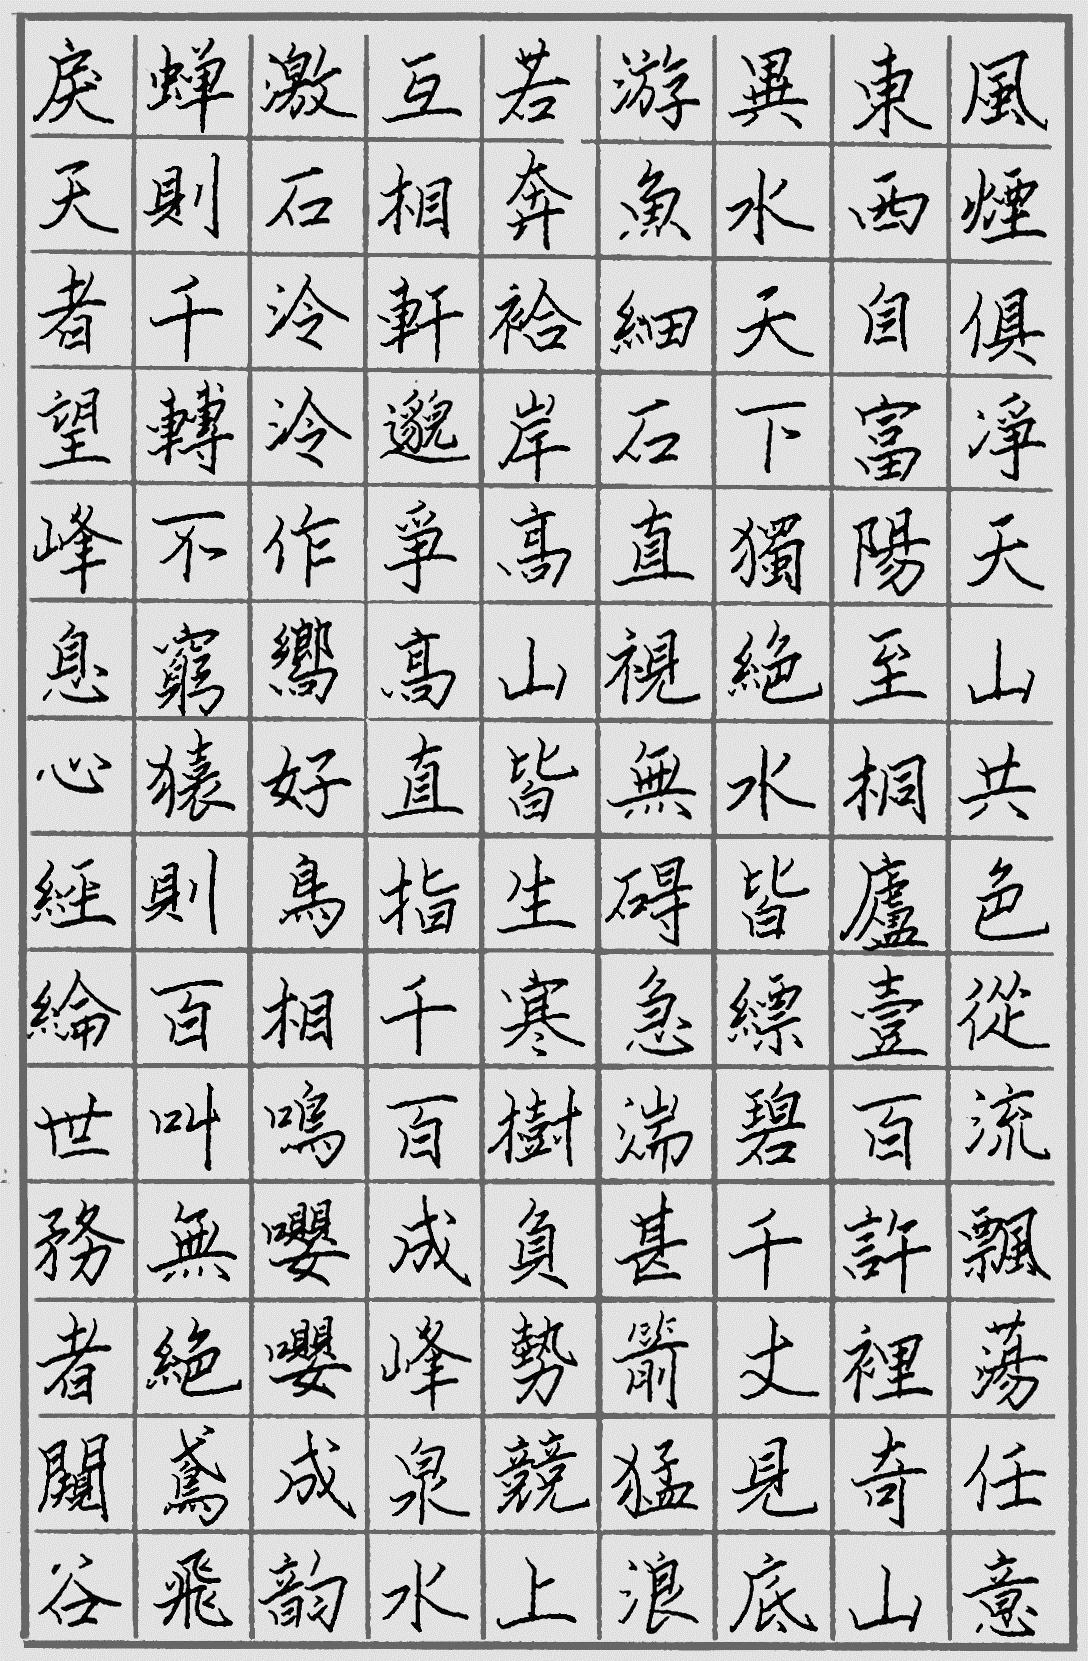 風煙俱淨天山共色從流飄蕩任意
東西自富陽至桐廬壹百許裡奇山
異水天下獨絕水皆縹碧千丈見底
游魚細石直視無碍急湍甚箭猛浪
若奔袷岸高山皆生寒樹負勢競上
互相軒邈爭高直指千百成峰泉水
激石泠泠作嚮好鳥相鳴嚶嚶成韵
蟬則千轉不窮猿則百叫無絕鳶飛
戾天者望峰息心經綸世務者闚谷